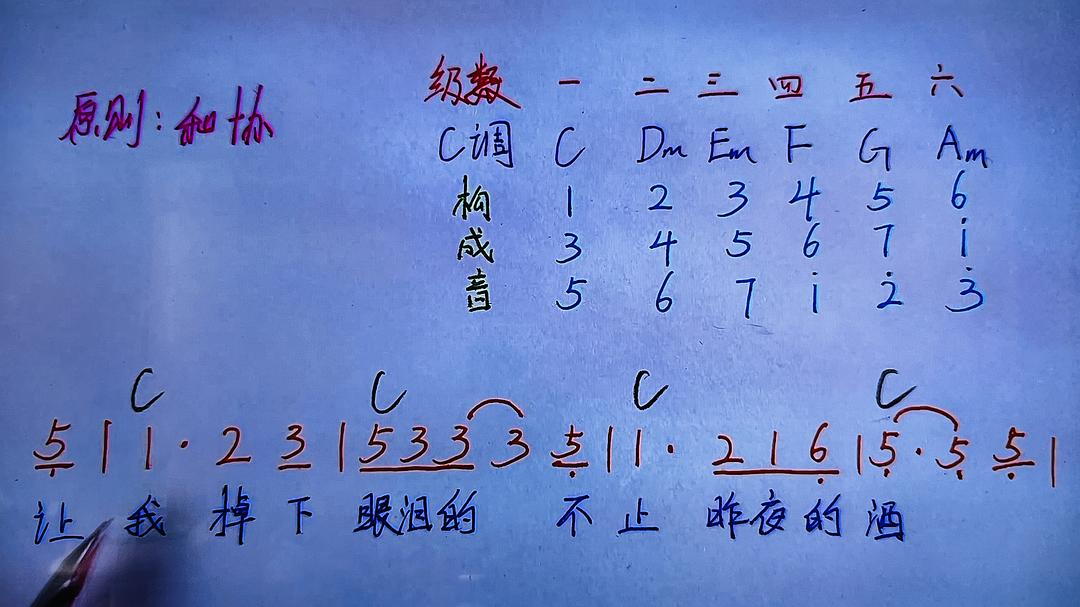 级数 一 二 三 四 五 六
原则：和协
C调 C Dm Em F G Am
构 1 2 3 4 5 6
成 3 4 5 6 7 i
音 5 6 7 i 2̇ 3̇
C C C C
5̣ | 1 · 2 3 | 5 3 3 3 5̣ | 1 · 2 1 6̣ | 5̣ · 5̣ 5̣ |
让 我 掉 下 眼泪的 不 止 昨夜的 酒